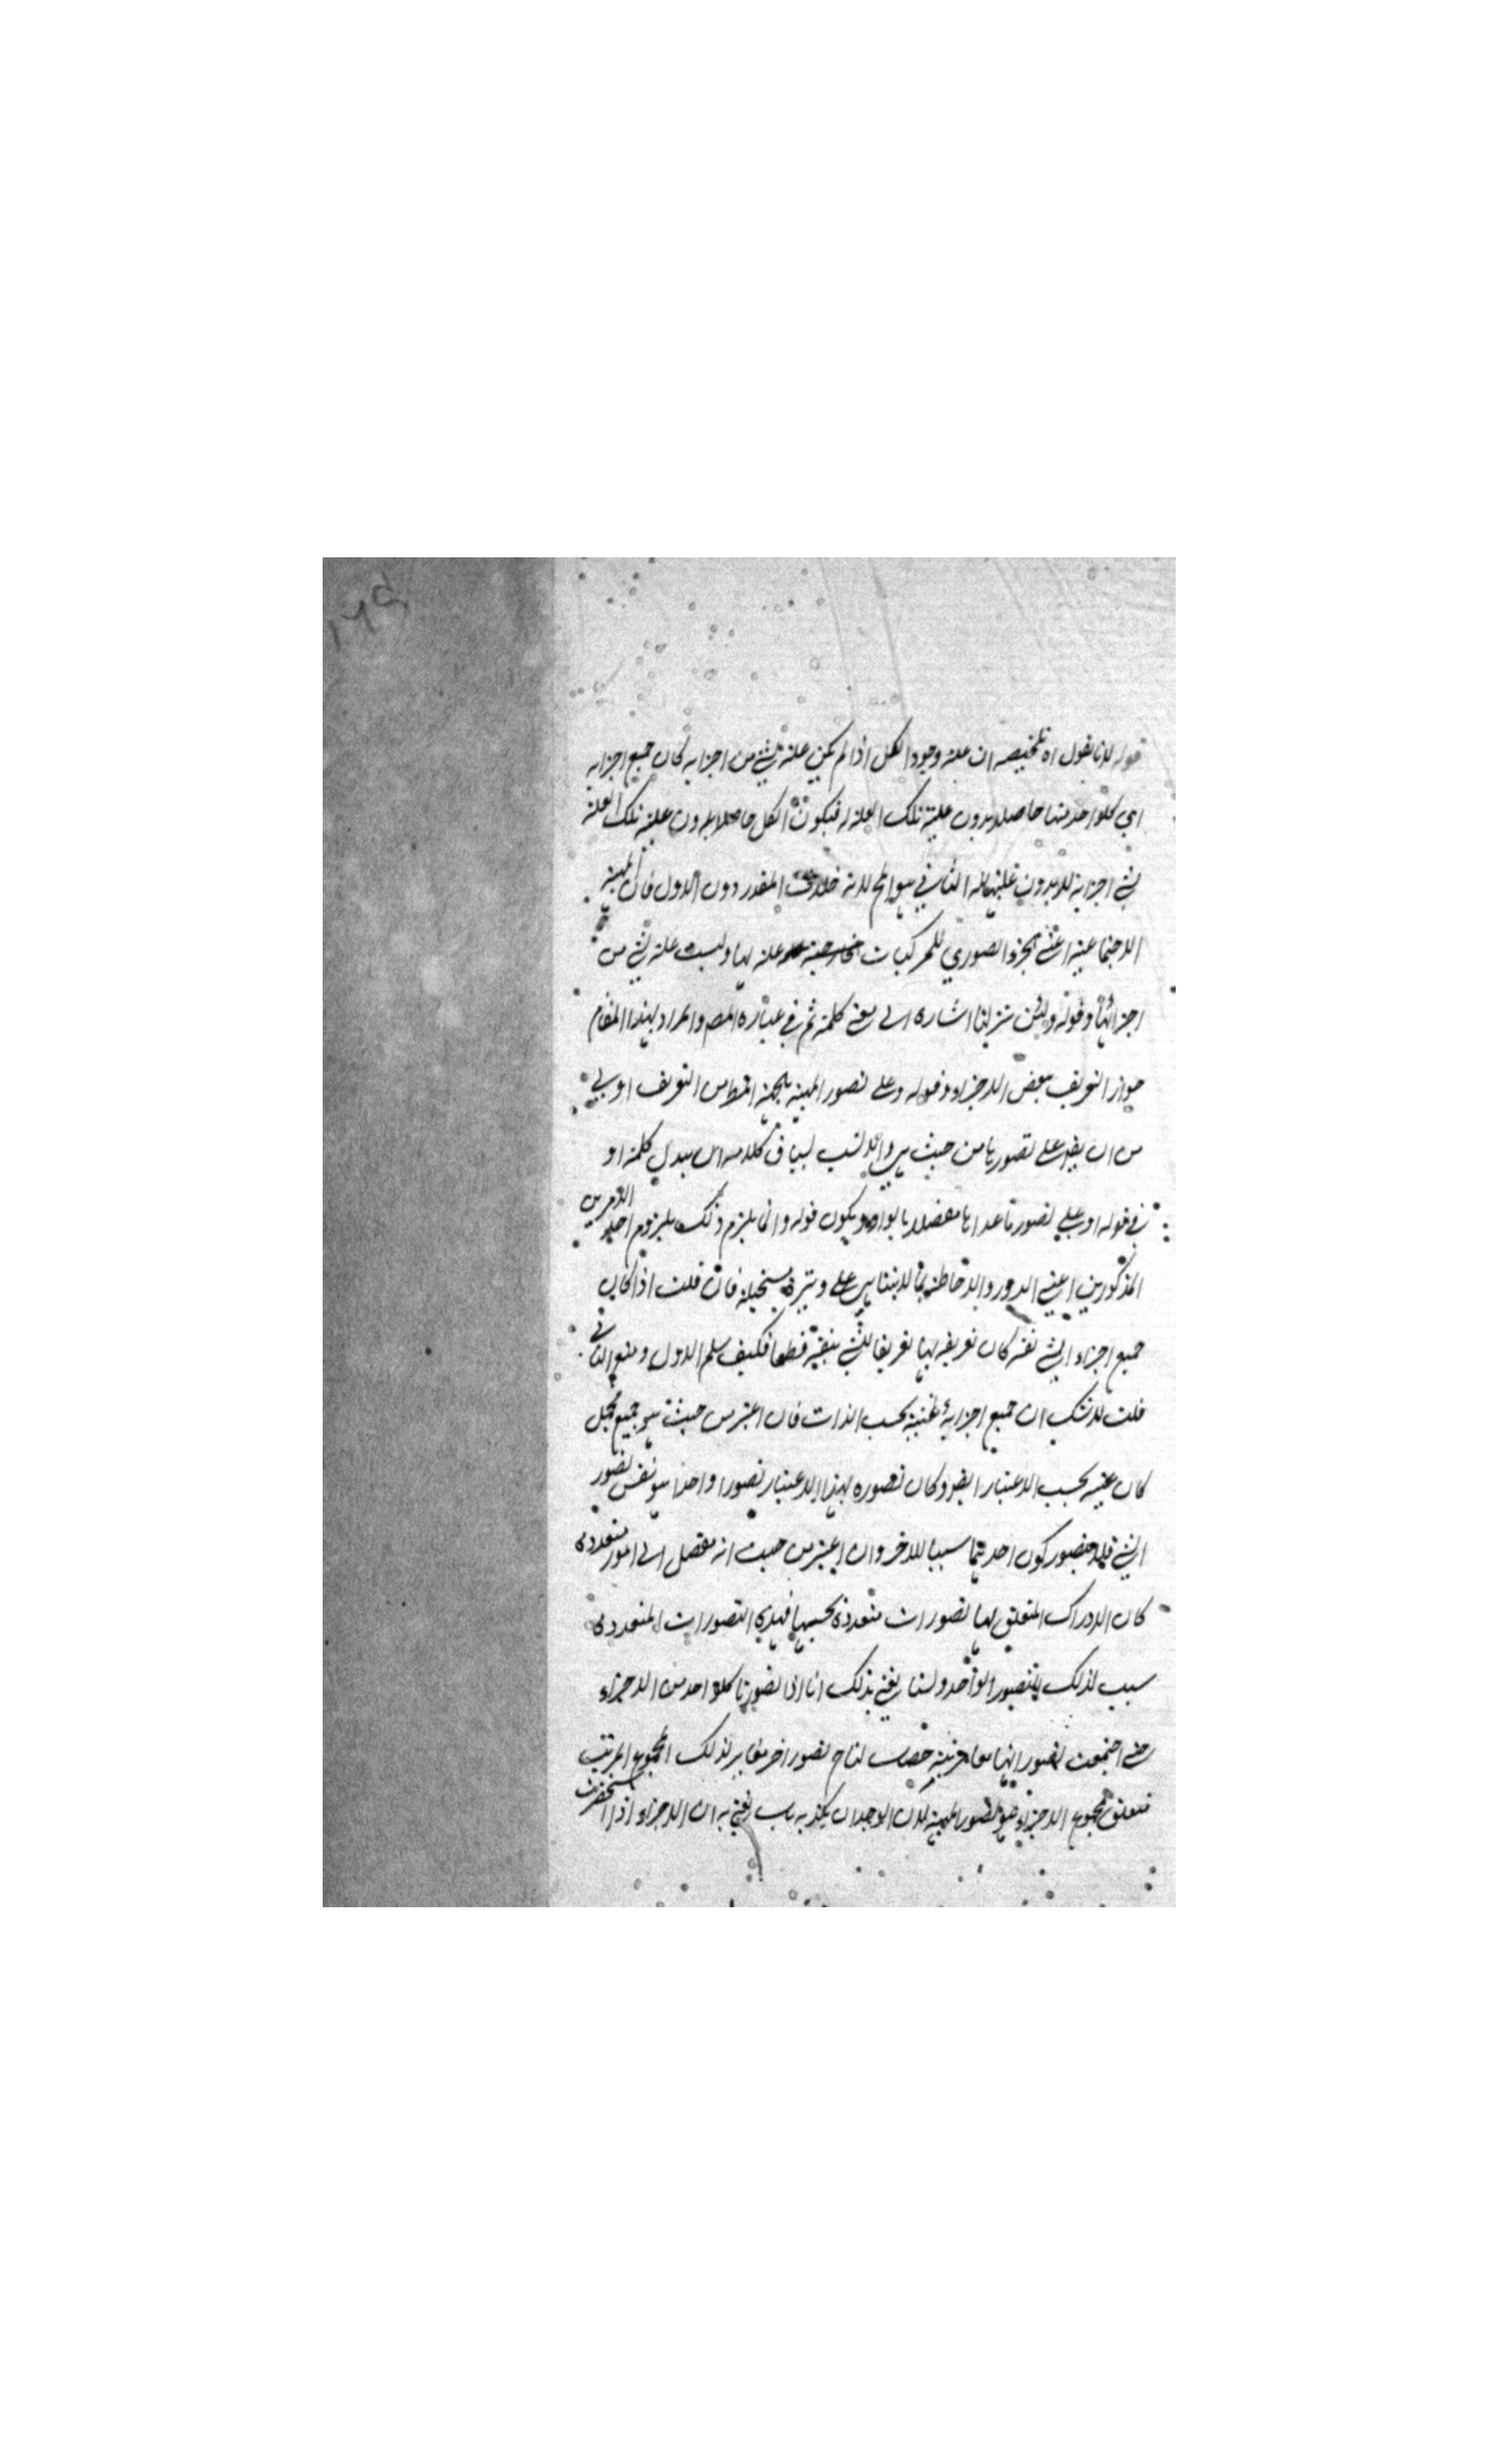 قوله لانا نقول اه تلخيصه ان علة وجود الكل اذا لم يكن علة لشئ من اجزايه لكان جميع اجزايه
اي كلواحد منها حاصلا بدون علية تلك العلة له فيكون الكل حاصلا بدون علية تلك العلة
لشئ اجزايه لا بدون عليتها له الثاني هو المحال لانه خلاف المقدر دون الاول فان الهيئة
الاجتماعية اعني الجزء الصوري للمركبات علة لها وليست علة لشئ من
اجزائها وقوله ولئن تنزلنا اشارة الى معنى كلمة ثم في عبارة المص والمراد بهذا المقام
جواز التعريف ببعض الاجزاء وقوله وعلى تصور المهية التعريف اولى
من ان يق على تصورها من حيث هي والانسب لسياق كلامه ان يبدل كلمة او
في قوله او على تصور ما عداها مفصلا بالواو ويكون قوله وانى يلزم ذلك بلزوم احد الامرين
المذكورين اعني الدور والاحاطة بما لا يتناهى على وتيرة مستحيلة فان قلت اذا كان
جميع اجزاء الشئ نفسه كان تعريفه بها تعريفا للشئ بنفسه قطعا فكيف سلم الاول ومنع الثاني
قلت لا شك ان جميع اجزايه عينه بحسب الذات فان اعتبر من حيث هو جميع مجمل
كان عينه بحسب الاعتبار ايضا وكان تصوره بهذا الاعتبار تصورا واحدا هو نفس تصور
الشئ فلا يتصور كون احدهما سببا للاخر وان اعتبر من حيث انه مفصل الى امور متعددة
كان الادراك المتعلق بها تصورات متعددة بحسبها فهذه التصورات المتعددة
سبب لذلك التصور الواحد ولسنا نعني بذلك انا اذا تصورنا كلواحد من الاجزاء
حتى اجتمعت تصوراتها معا مرتبة حصلت لنا ح تصور اخر مغاير لذلك المجموع المرتب
متعلق بمجموع الاجزاء هو تصور المهية لان الوجدان يكذبه بل نعني به ان الاجزاء اذا استحضرت